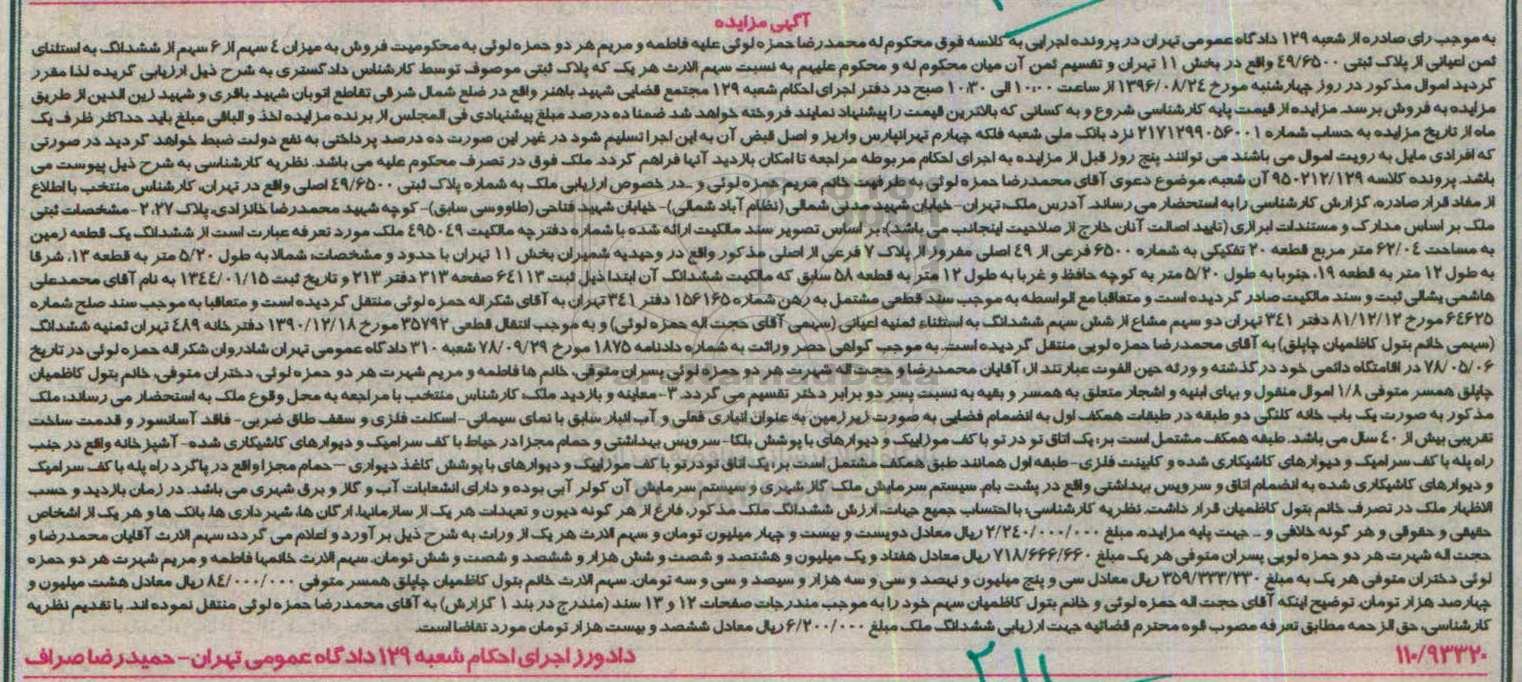 آگهی مزایده
به موجب رای صادره از شعبه ۱۲۹ دادگاه عمومی تهران در پرونده اجرایی به کلاسه فوق محکوم له محمدرضا حمزه لوئی علیه فاطمه و مریم هر دو حمزه لوئی به محکومیت فروش به میزان ۴ سهم از ۶ سهم از ششدانگ به استثنای
ثمن اعیانی از پلاک ثبتی ۴۹/۶۵۰۰ واقع در بخش ۱۱ تهران و تقسیم ثمن آن میان محکوم له و محکوم علیهم به نسبت سهم الارث هر یک که پلاک ثبتی موصوف توسط کارشناس دادگستری به شرح ذیل ارزیابی گریده لذا مقرر
گردید اموال مذکور در روز چهارشنبه مورخ ۱۳۹۶/۰۸/۲۴ از ساعت ۱۰:۰۰ الی ۱۰:۳۰ صبح در دفتر اجرای احکام شعبه ۱۲۹ مجتمع قضایی شهید باهنر واقع در ضلع شمال شرقی تقاطع اتوبان شهید باقری و شهید زین الدین از طریق
مزایده به فروش برسد. مزایده از قیمت پایه کارشناسی شروع و به کسانی که بالاترین قیمت را پیشنهاد نمایند فروخته خواهد شد. ضمنا ده درصد مبلغ پیشنهادی فی المجلس از برنده مزایده اخذ و الباقی مبلغ باید حداکثر ظرف یک
ماه از تاریخ مزایده به حساب شماره ۲۱۷۱۲۹۹۰۵۶۰۰۱ نزد بانک ملی شعبه فلکه چهارم تهرانپارس واریز و اصل قبض آن به این اجرا تسلیم شود در غیر این صورت ده درصد پرداختی به نفع دولت ضبط خواهد گردید در صورتی
که افرادی مایل به رویت اموال می باشند می توانند پنج روز قبل از مزایده به اجرای احکام مربوطه مراجعه تا امکان بازدید آنها فراهم گردد. ملک فوق در تصرف محکوم علیه می باشد. نظریه کارشناسی به شرح ذیل پیوست می
باشد. پرونده کلاسه ۹۵۰۲۱۲/۱۲۹ آن شعبه، موضوع دعوی آقای محمدرضا حمزه لوئی به طرفیت خانم مریم حمزه لوئی و ـ در خصوص ارزیابی ملک به شماره پلاک ثبتی ۴۹/۶۵۰۰ اصلی واقع در تهران، کارشناس منتخب با اطلاع
از مفاد قرار صادره، گزارش کارشناسی را به استحضار می رساند. آدرس ملک: تهران- خیابان شهید مدنی شمالی (نظام آباد شمالی)- خیابان شهید فتاحی (طاووسی سابق)- کوچه شهید محمدرضا خانزادی، پلاک ۲،۲۷- مشخصات ثبتی
ملک بر اساس مدارک و مستندات ابرازی (تایید اصالت آنان خارج از صلاحیت اینجانب می باشد): بر اساس تصویر سند مالکیت ارائه شده با شماره دفترچه مالکیت ۴۹۵۰۴۹ ملک مورد تعرفه عبارت است از ششدانگ یک قطعه زمین
به مساحت ۶۲/۰۴ متر مربع قطعه ۲۰ تفکیکی به شماره ۶۵۰۰ فرعی از ۴۹ اصلی مفروز از پلاک ۷ فرعی از اصلی مذکور واقع در وحیدیه شمیران بخش ۱۱ تهران با حدود و مشخصات: شمالا به طول ۵/۲۰ متر به قطعه ۱۳، شرقا
به طول ۱۲ متر به قطعه ۱۹، جنوبا به طول ۵/۲۰ متر به کوچه حافظ و غربا به طول ۱۲ متر به قطعه ۵۸ سابق که مالکیت ششدانگ آن ابتدا ذیل ثبت ۶۴۱۱۳ صفحه ۳۱۳ دفتر ۲۱۳ و تاریخ ثبت ۱۳۴۴/۰۱/۱۵ به نام آقای محمدعلی
هاشمی یشالی ثبت و سند مالکیت صادر گردیده است و متعاقبا مع الواسطه به موجب سند قطعی مشتمل به رهن شماره ۱۵۶۱۶۵ دفتر ۳۴۱ تهران به آقای شکراله حمزه لوئی منتقل گردیده است و متعاقبا به موجب سند صلح شماره
۶۴۶۲۵ مورخ ۸۱/۱۲/۱۲ دفتر ۳۴۱ تهران دو سهم مشاع از شش سهم ششدانگ به استثناء ثمنیه اعیانی (سهمی آقای حجت اله حمزه لوئی) و به موجب انتقال قطعی ۳۵۷۹۲ مورخ ۱۳۹۰/۱۲/۱۸ دفترخانه ۴۸۹ تهران ثمنیه ششدانگ
(سهمی خانم بتول کاظمیان چاپلق) به آقای محمدرضا حمزه لویی منتقل گردیده است. به موجب گواهی حصر وراثت به شماره دادنامه ۱۸۷۵ مورخ ۷۸/۰۹/۲۹ شعبه ۳۱۰ دادگاه عمومی تهران شادروان شکراله حمزه لوئی در تاریخ
۷۸/۰۵/۰۶ در اقامتگاه دائمی خود در گذشته و ورثه حین الفوت عبارتند از: آقایان محمدرضا و حجت اله شهرت هر دو حمزه لوئی پسران متوفی، خانم ها فاطمه و مریم شهرت هر دو حمزه لوئی، دختران متوفی، خانم بتول کاظمیان
چاپلق همسر متوفی ۱/۸ اموال منقول و بهای ابنیه و اشجار متعلق به همسر و بقیه به نسبت پسر دو برابر دختر تقسیم می گردد. ۳-معاینه و بازدید ملک: کارشناس منتخب با مراجعه به محل وقوع ملک به استحضار می رساند: ملک
مذکور به صورت یک باب خانه کلنگی دو طبقه در طبقات همکف اول به انضمام فضایی به صورت زیرزمین به عنوان انباری فعلی و آب انبار سابق با نمای سیمانی- اسکلت فلزی و سقف طاق ضربی- فاقد آسانسور و قدمت ساخت
تقریبی بیش از ۴۰ سال می باشد. طبقه همکف مشتمل است بر: یک اتاق تو در تو با کف موزاییک و دیوارهای با پوشش بلکا- سرویس بهداشتی و حمام مجزا در حیاط با کف سرامیک و دیوارهای کاشیکاری شده- آشپزخانه واقع در جنب
راه پله با کف سرامیک و دیوارهای کاشیکاری شده و کابینت فلزی- طبقه اول همانند طبق همکف مشتمل است بر: یک اتاق تودرتو با کف موزاییک و دیوارهای با پوشش کاغذ دیواری – حمام مجزا واقع در پاگرد راه پله با کف سرامیک
و دیوارهای کاشیکاری شده به انضمام اتاق و سرویس بهداشتی واقع در پشت بام. سیستم سرمایش ملک گاز شهری و سیستم سرمایش آن کولر آبی بوده و دارای انشعابات آب و گاز و برق شهری می باشد. در زمان بازدید و حسب
الاظهار ملک در تصرف خانم بتول کاظمیان قرار داشت. نظریه کارشناسی: با احتساب جمیع جهات، ارزش ششدانگ ملک مذکور، فارغ از هر گونه دیون و تعهدات هر یک از سازمانها، ارگان ها، شهرداری ها، بانک ها و هر یک از اشخاص
حقیقی و حقوقی و هر گونه خلافی و ـ جهت پایه مزایده، مبلغ ۲/۲۴۰/۰۰۰/۰۰۰ ریال معادل دویست و بیست و چهار میلیون تومان و سهم الارث هر یک از وراث به شرح ذیل برآورد و اعلام می گردد: سهم الارث آقایان محمدرضا و
حجت اله شهرت هر دو حمزه لویی پسران متوفی هر یک مبلغ ۷۱۸/۶۶۶/۶۶۰ ریال معادل هفتاد و یک میلیون و هشتصد و شصت و شش هزار و ششصد و شصت و شش تومان. سهم الارث خانمها فاطمه و مریم شهرت هر دو حمزه
لوئی دختران متوفی هر یک به مبلغ ۳۵۹/۳۳۳/۳۳۰ ریال معادل سی و پنج میلیون و نهصد و سی و سه هزار و سیصد و سی و سه تومان. سهم الارث خانم بتول کاظمیان چاپلق همسر متوفی ۸۴/۰۰۰/۰۰۰ ریال معادل هشت میلیون و
چهارصد هزار تومان. توضیح اینکه آقای حجت اله حمزه لوئی و خانم بتول کاظمیان سهم خود را به موجب مندرجات صفحات ۱۲ و ۱۳ سند (مندرج در بند ۱ گزارش) به آقای محمدرضا حمزه لوئی منتقل نموده اند. با تقدیم نظریه
کارشناسی، حق الزحمه مطابق تعرفه مصوب قوه محترم قضائیه جهت ارزیابی ششدانگ ملک مبلغ ۶/۲۰۰/۰۰۰ ریال معادل ششصد و بیست هزار تومان مورد تقاضا است.
۱۱۰/۹۳۳۲۰
دادورز اجرای احکام شعبه ۱۲۹ دادگاه عمومی تهران- حمیدرضا صراف